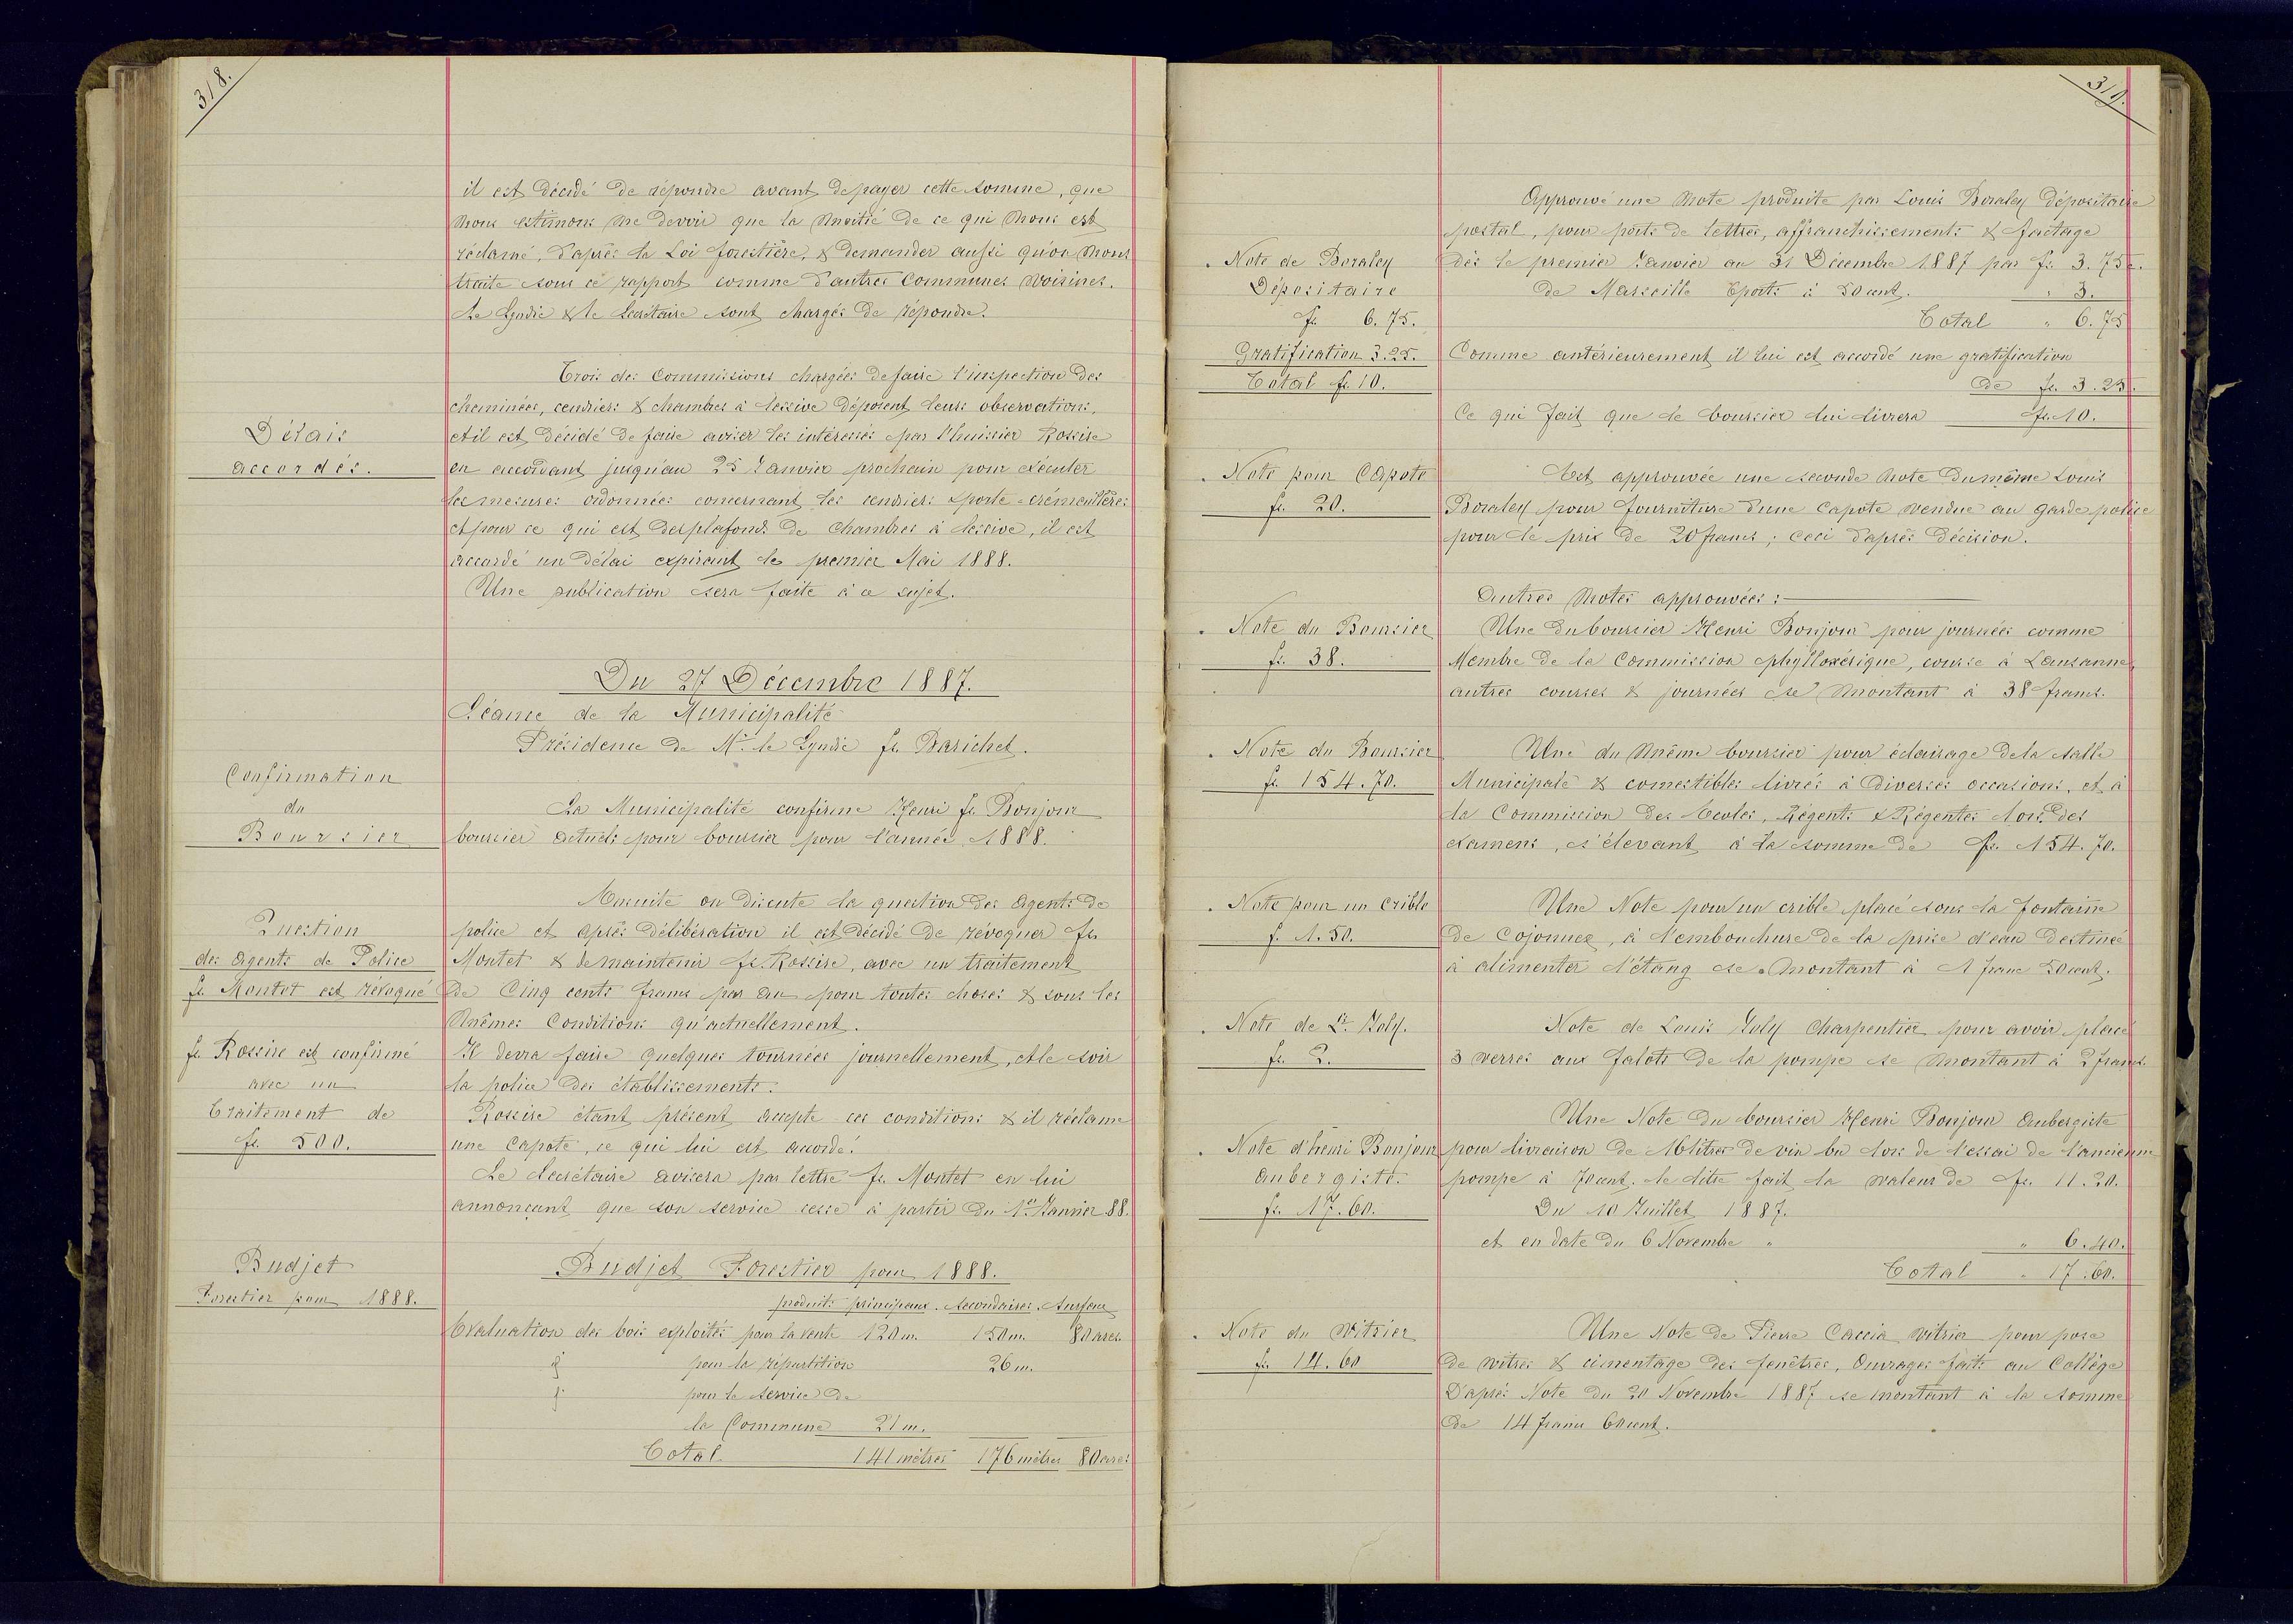 318.
il est décidé de répondre avant de payer cette somme, que
nous estimons ne devoir que la moitié de ce qui nous est
réclamé, d'après la Loi forestière, & demander aussi qu'on nous
traite sous ce rapport comme d'autres Communes voisines.
Le Syndic & le Secrétaire sont chargés de répondre.
Délais
accordés.
Trois des Commissions chargées de faire l'inspection des
cheminées, cendriers & chambres à lessive déposent leurs observations,
et il est décidé de faire aviser les intéressés par l'huissier Rossire
en accordant jusqu'au 25 Janvier prochain pour exécuter
les mesures ordonnées concernant les cendriers & porte-crémaillères
et pour ce qui est des plafonds de chambres à lessive, il est
accordé un délai expirant le premier Mai 1888.
Une publication sera faite à ce sujet.
Du 27 Décembre 1887.
Séance de la Municipalité
Présidence de Mr. le Syndic fs. Barichet.
Confirmation
du
Boursier
La Municipalité confirme Henri fs. Bonjour
boursier actuel pour boursier pour l'année 1888.
Question
des Agents de Police
fs. Montet est révoqué
fs. Rossire est confirmé
avec un
Traitement de
fr. 500.
Ensuite on discute la question des Agents de
police et après délibération il est décidé de révoquer fs.
Montet & de maintenir fs. Rossire, avec un traitement
de Cinq cents francs par an pour toutes choses & sous les
mêmes Conditions qu'actuellement.
Il devra faire quelques tournées journellement, et le soir
la police des établissements.
Rossire étant présent accepte ces conditions & il réclame
une Capote, ce qui lui est accordé.
Le Secrétaire avisera par lettre fs. Montet en lui
annonçant que son service cesse à partir du 1er Janvier 88.
Budjet
Forestier pour 1888.
Budjet Forestier pour 1888.
produits principaux. Secondaires. Surface
Evaluation des bois exploités pour la vente 120 m. 150 m. 80 ares
pour la répartition 26 m.
pour le service de
la Commune 21 m.
Total 141 mètres 176 mètres 80 ares
319.
Note de Boraley
Dépositaire
fr. 6.75.
Gratification 3.25.
Total fr. 10.
Approuvé une Note produite par Louis Boraley dépositaire
postal, pour ports de lettres, affranchissements & factage
dès le premier Janvier au 31 Décembre 1887 par fr. 3.75c.
de Marseille 6 ports à 50 cent. " 3.
Total " 6.75
Comme antérieurement il lui est accordé une gratification
de fr. 3.25.
Ce qui fait que le boursier lui livrera fr. 10.
Note pour Capote
fr. 20.
Est approuvée une seconde Note du même Louis
Boraley pour fourniture d'une Capote vendue au garde police
pour le prix de 20 francs; ceci d'après décision.
Autres Notes approuvées:
Note du Boursier
fr. 38.
Une du boursier Henri Bonjour pour journées comme
Membre de la Commission phylloxérique, course à Lausanne,
autres courses & journées se montant à 38 francs.
Note du Boursier
fr. 154.70.
Une du même boursier pour éclairage de la salle
Municipale & comestibles livrés à diverses occasions, et à
la Commission des Ecoles, Régents & Régentes lors des
examens, s'élevant à la somme de fr. 154.70.
Note pour un Crible
f. 1.50.
Une Note pour un crible placé sous la fontaine
de Cojonnex, à l'embouchure de la prise d'eau destinée
à alimenter l'étang se montant à 1 franc 50 cent.
Note de Ls. Joly.
fr. 2.
Note de Louis Joly Charpentier pour avoir placé
3 verres aux falots de la pompe se montant à 2 francs.
Note d'henri Bonjour
aubergiste.
fr. 17.60.
Une Note du boursier Henri Bonjour Aubergiste
pour livraison de 16 litres de vin bu lors de l'essai de l'ancienne
pompe à 70 cent. le litre fait la valeur de fr. 11.20.
Du 10 Juillet 1887.
et en date du 6 Novembre " " 6.40.
Total " 17.60.
Note du Vitrier
fr. 14.60
Une Note de Pierre Caccia vitrier pour pose
de vitres & cimentage des fenêtres, Ouvrages faits au Collège
D'après Note du 20 Novembre 1887 se montant à la somme
de 14 francs 60 cent.